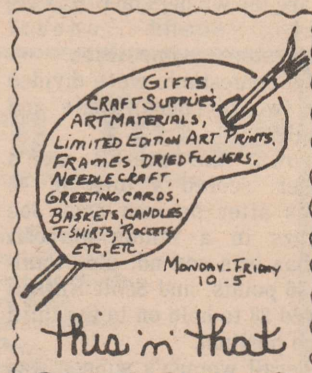 GIFTS,
CRAFT SUPPLIES,
ART MATERIALS,
LIMITED EDITION ART PRINTS,
FRAMES, DRIED FLOWERS,
NEEDLECRAFT,
GREETING CARDS,
BASKETS, CANDLES,
T-SHIRTS, ROCKETS
ETC, ETC.
MONDAY-FRIDAY
10-5
this 'n' that